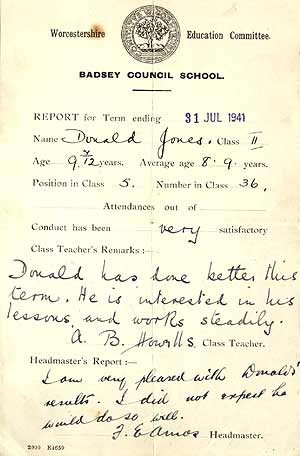 Worcestershire Education Committee.
BADSEY COUNCIL SCHOOL.
REPORT for Term ending 31 JUL 1941
Name Donald Jones. Class II
Age 9 7/12 years. Average age 8.9. years.
Position in Class 5. Number in Class 36.
Attendances out of
Conduct has been very satisfactory
Class Teacher's Remarks :—
Donald has done better this
term. He is interested in his
lessons and works steadily.
A. B. Howells, Class Teacher.
Headmaster's Report :—
I am very pleased with Donald's
results. I did not expect he
would do so well.
F. E Amos Headmaster.
2000 E4650